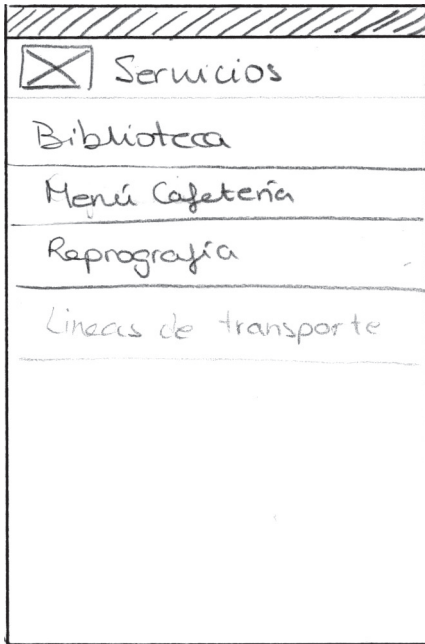 Servicios
Biblioteca
Menú Cafetería
Reprografía
Lineas de transporte